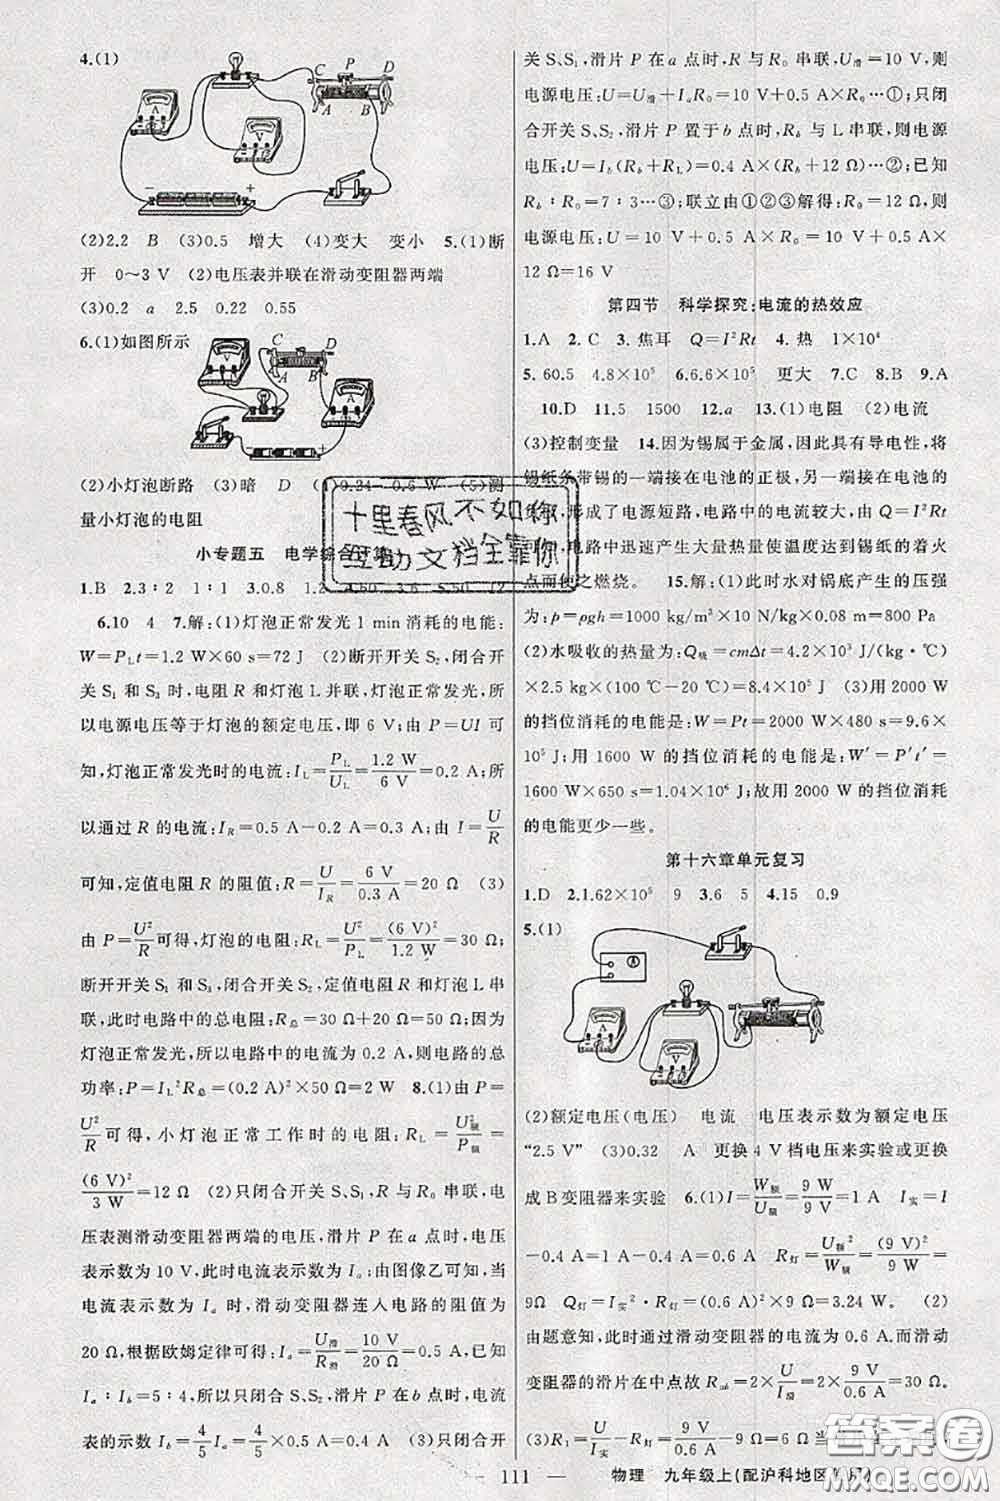 4.(1)
C P D
A B
A
V
− +
(2)2.2 B (3)0.5 增大 (4)变大 变小 5.(1)断
开 0～3 V (2)电压表并联在滑动变阻器两端
(3)0.2 a 2.5 0.22 0.55
6.(1)如图所示
C D
A B
V
A
(2)小灯泡断路 (3)暗 D (4)0.24～0.6 W (5)测
量小灯泡的电阻
小专题五 电学综合计算
1.B 2.3∶2 1∶1 3.0.8 1.2
6.10 4 7.解:(1)灯泡正常发光 1 min 消耗的电能:
W=P_L t=1.2 W×60 s=72 J (2)断开开关 S₂,闭合开
关 S₁ 和 S₃ 时,电阻 R 和灯泡 L 并联,灯泡正常发光,所
以电源电压等于灯泡的额定电压,即 6 V;由 P=UI 可
知,灯泡正常发光时的电流:I_L=P_L/U_L=1.2 W/6 V=0.2 A;所
以通过 R 的电流:I_R=0.5 A-0.2 A=0.3 A;由 I=U/R
可知,定值电阻 R 的阻值:R=U/I_R=6 V/0.3 A=20 Ω (3)
由 P=U²/R 可得,灯泡的电阻:R_L=U_L²/P_L=(6 V)²/1.2 W=30 Ω;
断开开关 S₁ 和 S₃,闭合开关 S₂,定值电阻 R 和灯泡 L 串
联,此时电路中的总电阻:R总=30 Ω+20 Ω=50 Ω;因为
灯泡正常发光,所以电路中的电流为 0.2 A,则电路的总
功率:P=I_L²R总=(0.2 A)²×50 Ω=2 W 8.(1)由 P=
U²/R 可得,小灯泡正常工作时的电阻:R_L=U额²/P额=
(6 V)²/3 W=12 Ω (2)只闭合开关 S、S₁,R 与 R₀ 串联,电
压表测滑动变阻器两端的电压,滑片 P 在 a 点时,电压
表示数为 10 V,此时电流表示数为 I_a;由图像乙可知,当
电流表示数为 I_a 时,滑动变阻器连入电路的阻值为
20 Ω,根据欧姆定律可得:I_a=U滑/R滑=10 V/20 Ω=0.5 A,已知
I_a∶I_b=5∶4,所以只闭合 S、S₂,滑片 P 在 b 点时,电流
表的示数 I_b=4/5 I_a=4/5×0.5 A=0.4 A (3)只闭合开
关 S、S₁,滑片 P 在 a 点时,R 与 R₀ 串联,U滑=10 V,则
电源电压:U=U滑+I_aR₀=10 V+0.5 A×R₀…①;只闭
合开关 S、S₂,滑片 P 置于 b 点时,R_b 与 L 串联,则电源
电压:U=I_b(R_b+R_L)=0.4 A×(R_b+12 Ω)…②;已知
R_b∶R₀=7∶3…③;联立由①②③解得:R₀=12 Ω,则
电源电压:U=10 V+0.5 A×R₀=10 V+0.5 A×
12 Ω=16 V
第四节 科学探究:电流的热效应
1.A 2.C 3.焦耳 Q=I²Rt 4.热 1×10⁴
5.60.5 4.8×10⁵ 6.6.6×10⁵ 更大 7.C 8.B 9.A
10.D 11.5 1500 12.a 13.(1)电阻 (2)电流
(3)控制变量 14.因为锡属于金属,因此具有导电性,将
锡纸条带锡的一端接在电池的正极,另一端接在电池的
负极,形成了电源短路,电路中的电流较大,由 Q=I²Rt
知,电路中迅速产生大量热量使温度达到锡纸的着火
点而使之燃烧。 15.解:(1)此时水对锅底产生的压强
为:p=ρgh=1000 kg/m³×10 N/kg×0.08 m=800 Pa
(2)水吸收的热量为:Q吸=cmΔt=4.2×10³ J/(kg·℃)
×2.5 kg×(100 ℃-20 ℃)=8.4×10⁵ J (3)用 2000 W
的挡位消耗的电能是:W=Pt=2000 W×480 s=9.6×
10⁵ J;用 1600 W 的挡位消耗的电能是:W′=P′t′=
1600 W×650 s=1.04×10⁶ J;故用 2000 W 的挡位消耗
的电能更少一些。
第十六章单元复习
1.D 2.1.62×10⁵ 9 3.6 5 4.15 0.9
5.(1)
A
V
(2)额定电压(电压) 电流 电压表示数为额定电压
“2.5 V” (3)0.32 A 更换 4 V 档电压来实验或更换
成 B 变阻器来实验 6.(1)I=W额/U额=9 W/9 V=1 A I实=I
-0.4 A=1 A-0.4 A=0.6 A R灯=U额²/W额=(9 V)²/9 W=
9Ω Q灯=I实²·R灯=(0.6 A)²×9 Ω=3.24 W。 (2)
由题意知,此时通过滑动变阻器的电流为 0.6 A,而滑动
变阻器的滑片在中点故 R_ab=2×U/I滑=2×9 V/0.6 A=30 Ω。
(3)R₁=U/I实-R灯=9 V/0.6 A-9 Ω=6 Ω
111 物理 九年级上(配沪科地区使用)
十里春风不如你
互助文档全靠你
答案圈
MXQE.COM